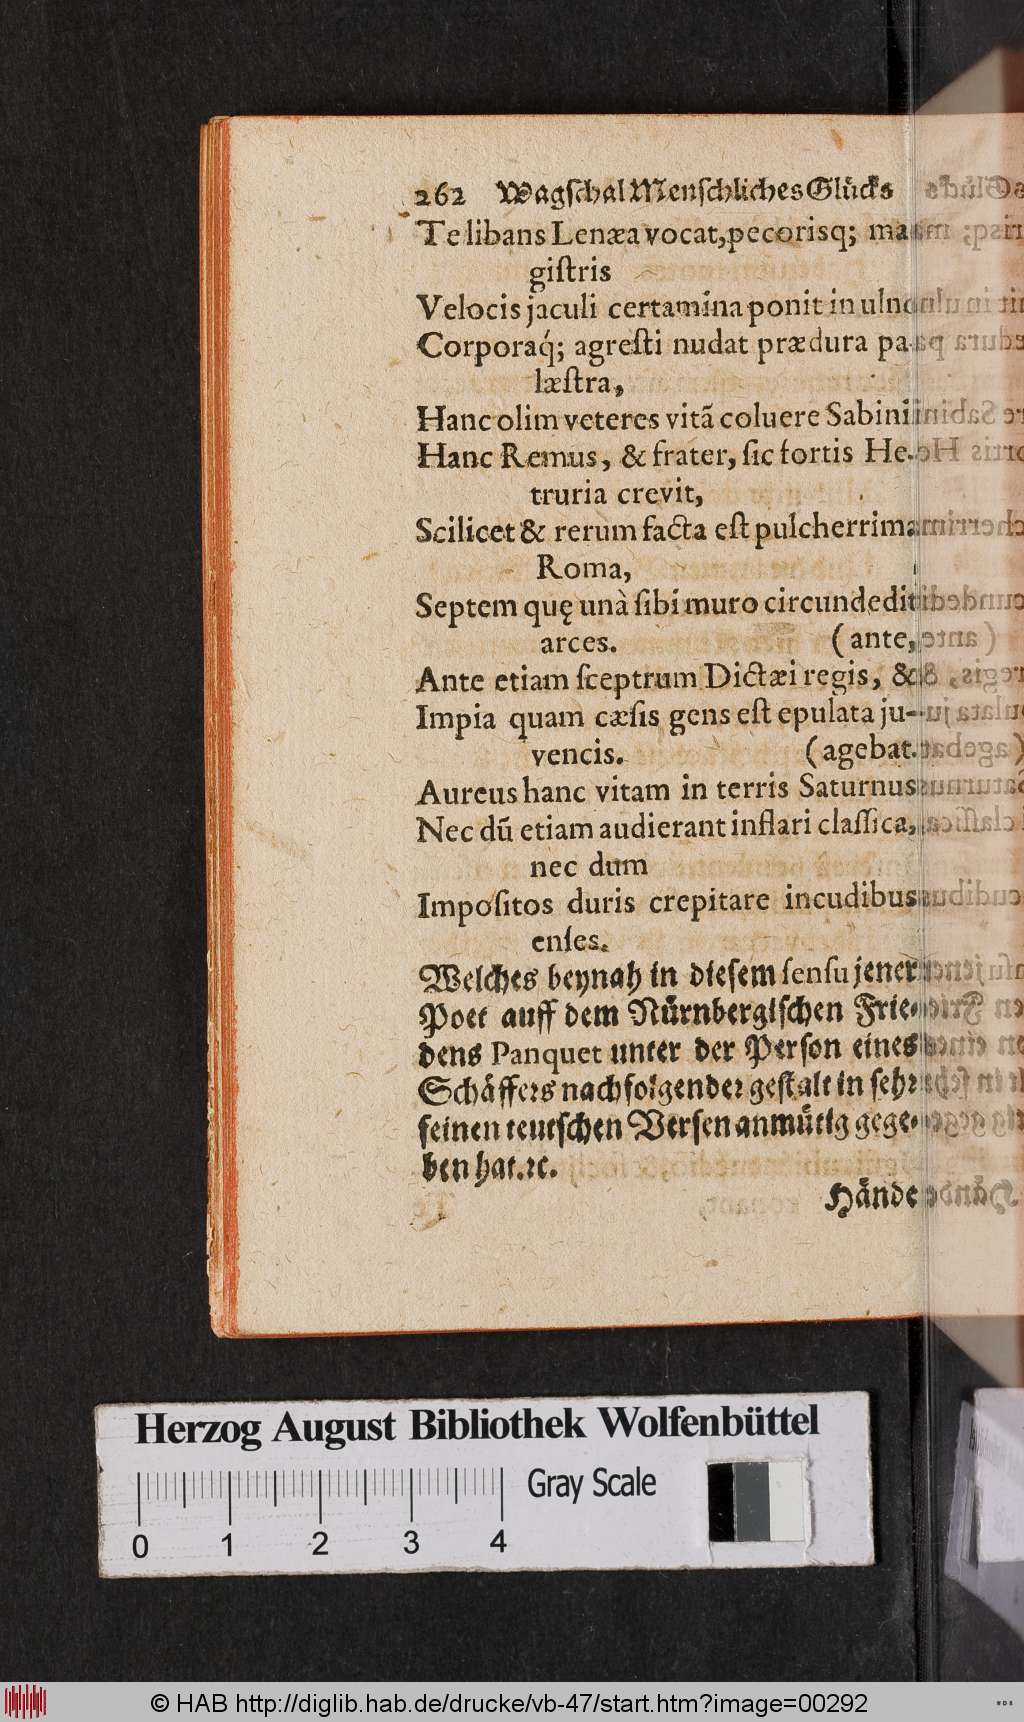 262 Wagſchal Menſchliches Glücks
Te libans Lenæa vocat, pecorisq; ma
giſtris
Velocis jaculi certamina ponit in ulno
Corporaq́; agreſti nudat prædura pa-
læſtra,
Hanc olim veteres vitã coluere Sabini
Hanc Remus, & frater, ſic fortis He-
truria crevit,
Scilicet & rerum facta eſt pulcherrima
Roma,
Septem quę unà ſibi muro circundedit
arces. (ante,
Ante etiam ſceptrum Dictæi regis, &
Impia quam cæſis gens eſt epulata ju-
vencis. (agebat.
Aureus hanc vitam in terris Saturnus
Nec dũ etiam audierant inflari claſſica,
nec dum
Impoſitos duris crepitare incudibus
enſes.
Welches beynah in dieſem ſenſu jener
Poet auff dem Nürnbergiſchen Frie-
dens Panquet unter der Perſon eines
Schäffers nachfolgender geſtalt in ſehr
feinen teutſchen Verſen anmütig gege-
ben hat. ꝛc.
Hände
Herzog August Bibliothek Wolfenbüttel
Gray Scale
0 1 2 3 4
© HAB http://diglib.hab.de/drucke/vb-47/start.htm?image=00292